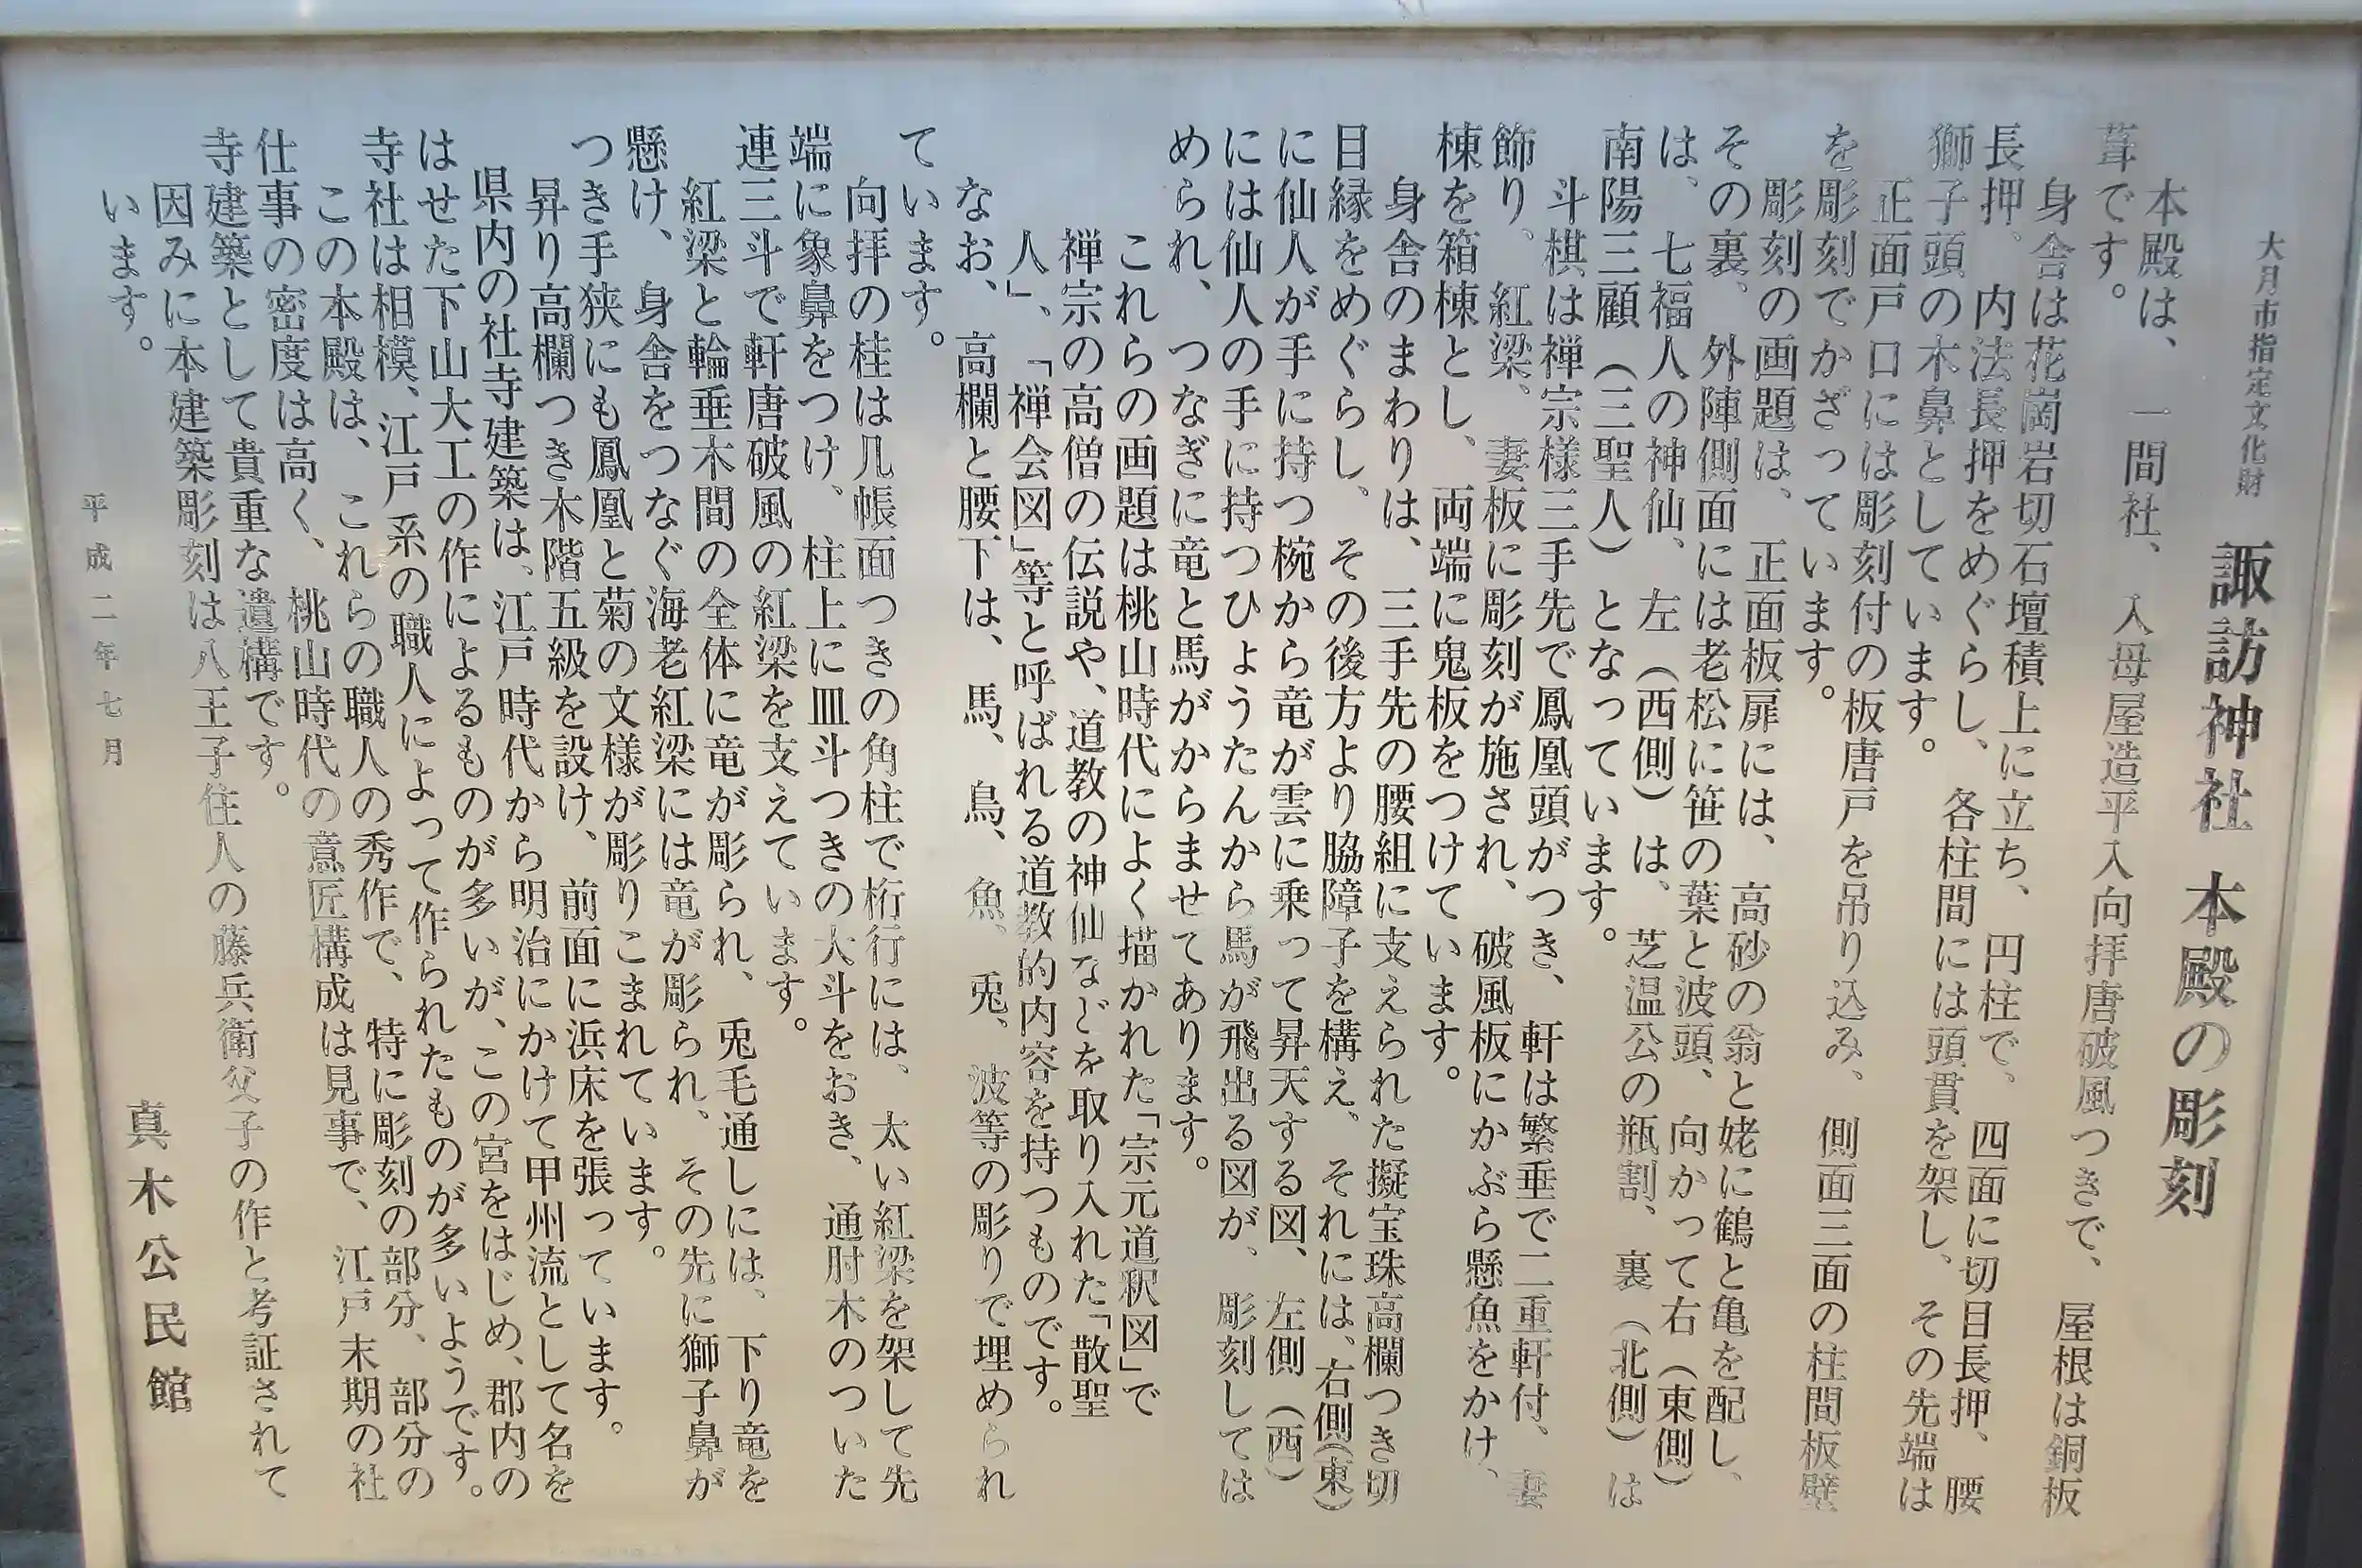 大月市指定文化財
諏訪神社 本殿の彫刻
本殿は、一間社、入母屋造平入向拝唐破風つきで、屋根は銅板
葺です。
身舎は花崗岩切石壇積上に立ち、円柱で、四面に切目長押、腰
長押、内法長押をめぐらし、各柱間には頭貫を架し、その先端は
獅子頭の木鼻としています。
正面戸口には彫刻付の板唐戸を吊り込み、側面三面の柱間板壁
を彫刻でかざっています。
彫刻の画題は、正面板扉には、高砂の翁と姥に鶴と亀を配し、
その裏、外陣側面には老松に笹の葉と波頭、向かって右(東側)
は、七福人の神仙、左(西側)は、芝温公の瓶割、裏(北側)は
南陽三顧(三聖人)となっています。
斗棋は禅宗様三手先で鳳凰頭がつき、軒は繁垂で二重軒付、妻
飾り、紅梁、妻板に彫刻が施され、破風板にかぶら懸魚をかけ、
棟を箱棟とし、両端に鬼板をつけています。
身舎のまわりは、三手先の腰組に支えられた擬宝珠高欄つき切
目縁をめぐらし、その後方より脇障子を構え、それには、右側(東)
に仙人が手に持つ椀から竜が雲に乗って昇天する図、左側(西)
には仙人の手に持つひょうたんから馬が飛出る図が、彫刻しては
められ、つなぎに竜と馬がからませてあります。
これらの画題は桃山時代によく描かれた「宗元道釈図」で
禅宗の高僧の伝説や、道教の神仙などを取り入れた「散聖
人」、「禅会図」等と呼ばれる道教的内容を持つものです。
なお、高欄と腰下は、馬、鳥、魚、兎、波等の彫りで埋められ
ています。
向拝の桂は几帳面つきの角柱で桁行には、太い紅梁を架して先
端に象鼻をつけ、柱上に皿斗つきの大斗をおき、通肘木のついた
連三斗で軒唐破風の紅梁を支えています。
紅梁と輪垂木間の全体に竜が彫られ、兎毛通しには、下り竜を
懸け、身舎をつなぐ海老紅梁には竜が彫られ、その先に獅子鼻が
つき手狭にも鳳凰と菊の文様が彫りこまれています。
昇り高欄つき木階五級を設け、前面に浜床を張っています。
県内の社寺建築は、江戸時代から明治にかけて甲州流として名を
はせた下山大工の作によるものが多いが、この宮をはじめ、郡内の
寺社は相模、江戸系の職人によって作られたものが多いようです。
この本殿は、これらの職人の秀作で、特に彫刻の部分、部分の
仕事の密度は高く、桃山時代の意匠構成は見事で、江戸末期の社
寺建築として貴重な遺構です。
因みに本建築彫刻は八王子住人の藤兵衛父子の作と考証されて
います。
平成二年七月
真木公民館